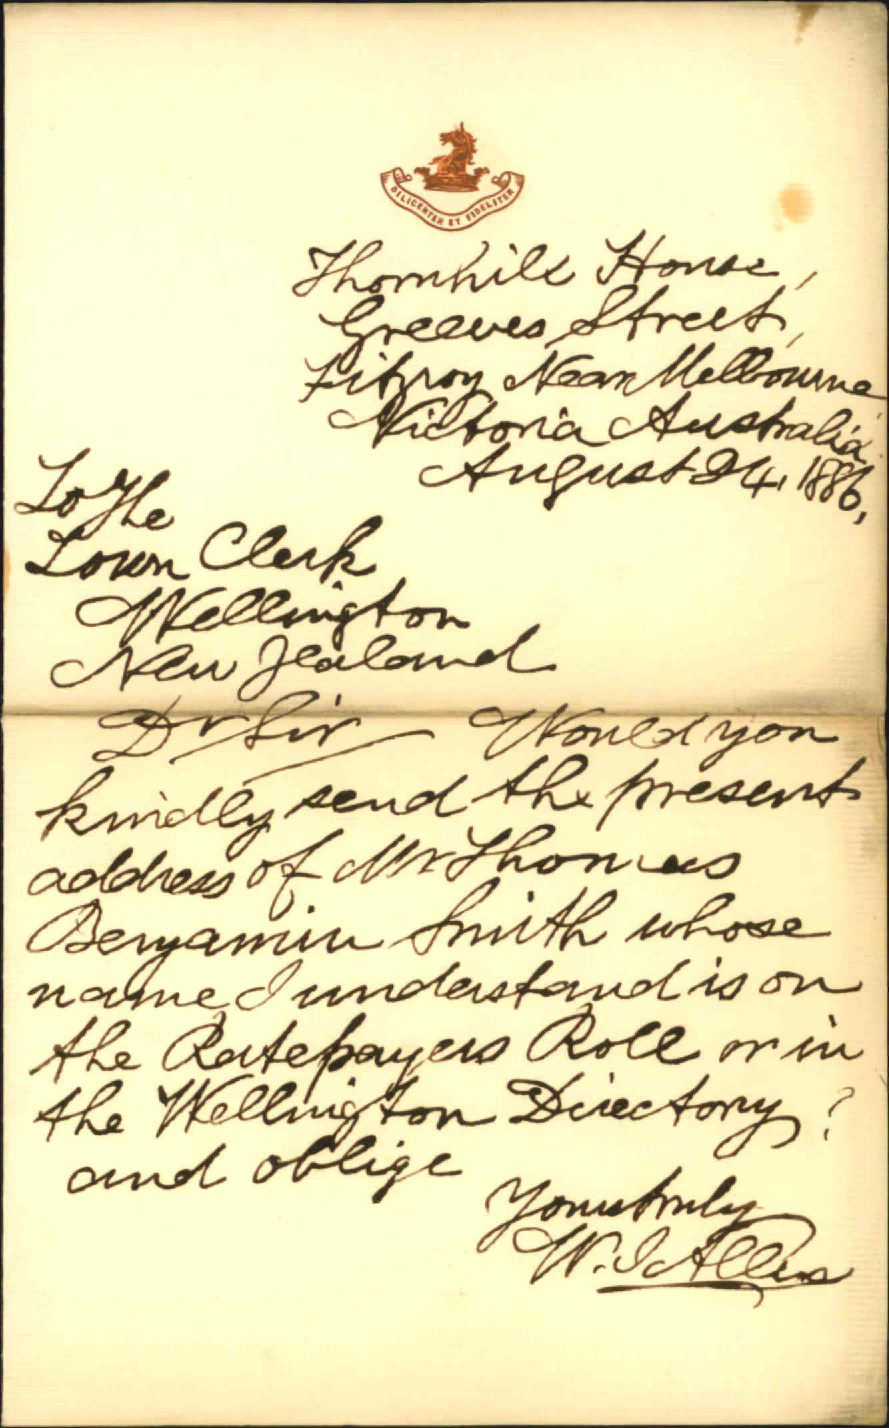 DILIGENTER ET FIDELITER
Thornhill House,
Greeves Street,
Fitzroy Near Melbourne
Victoria Australia.
August 24, 1886,
To The
Town Clerk
Wellington
New Zealand
Dr Sir Would you
kindly send the present
address of Mr Thomas
Benjamin Smith whose
name I understand is on
the Ratepayers Roll or in
the Wellington Directory?
and oblige
Yours truly
W.